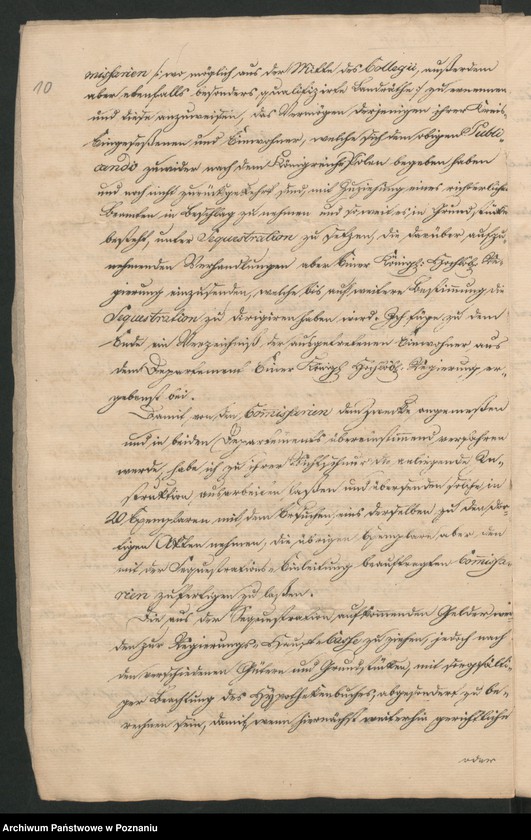 10
missarien /: wo möglich aus der Mitte des Collegii, außerdem
aber ebenfalls besonders qualifizirte Landräthe :/ zu ernennen
und diese anzuweisen, das Vermögen derjenigen ihrer Kreis-
Eingesessenen und Einwohner, welche sich dem obigen Publi-
cando zuwider nach dem Königreiche Polen begeben haben
und noch nicht zurückgekehrt sind, mit Zuziehung eines richterlichen
Beamten in Beschlag zu nehmen und soweit es in Grundstücken
besteht, unter Sequestration zu setzen, die darüber aufzu-
nehmenden Verhandlungen aber Einer Königl. Hochlöbl. Re-
gierung einzusenden, welche bis auf weitere Bestimmung die
Sequestration zu dirigiren haben wird. Ich füge zu dem
Ende ein Verzeichniß der ausgetretenen Einwohner aus
dem Departement Einer Königl. Hochlöbl. Regierung er-
gebenst bei.
Damit von den Comissarien dem Zwecke angemessen
und in beiden Departements übereinstimmend verfahren
werde, habe ich zu ihrer Richtschnur die anliegende In-
struktion ausarbeiten laßen und übersende solche in
20 Exemplaren mit dem Ersuchen, eins derselben zu den dor-
tigen Akten nehmen, die übrigen Exemplare aber den
mit der Sequestrations-Einleitung beauftragten Commissa-
rien zufertigen zu laßen.
Die aus der Sequestration aufkommenden Gelder wer-
den zur Regierungs-Haupt-Casse zu ziehen, jedoch nach
den verschiedenen Gütern und Grundstücken, mit sorgfälti-
ger Beachtung des Hypothekenbuches, abgesondert zu be-
rechnen sein, damit, wenn hiernächst weiterhin gerichtliche
oder
Archiwum Państwowe w Poznaniu